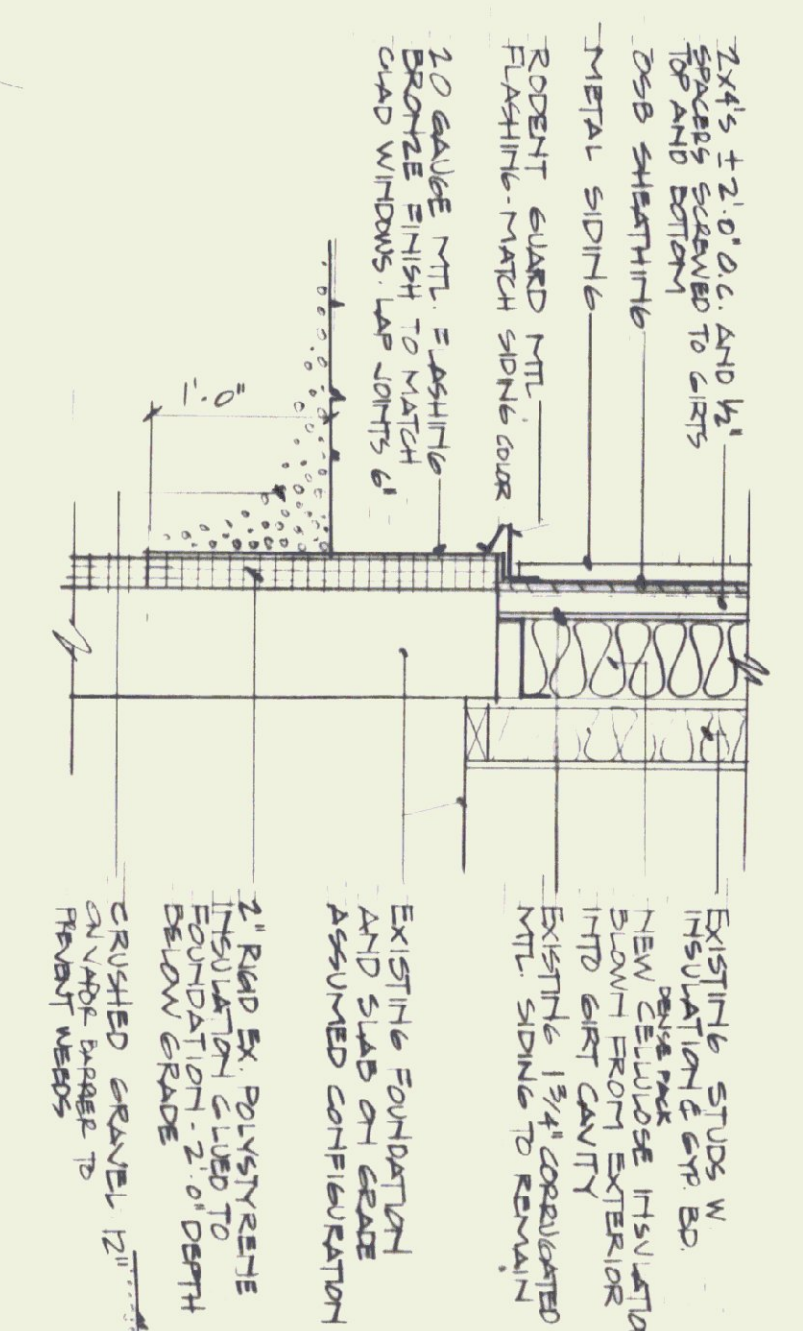 2X4'S ± 2'.0" O.C. AND 1/2"
SPACERS SCREWED TO GIRTS
TOP AND BOTTOM
OSB SHEATHING
METAL SIDING
RODENT GUARD MTL.
FLASHING-MATCH SIDING COLOR
20 GAUGE MTL. FLASHING
BRONZE FINISH TO MATCH
CLAD WINDOWS. LAP JOINTS 6"
1'.0"
EXISTING STUDS W.
INSULATION & GYP. BD.
DENSE PACK
NEW CELLULOSE INSULATIO
BLOWN FROM EXTERIOR
INTO GIRT CAVITY
EXISTING 1 3/4" CORRUGATED
MTL. SIDING TO REMAIN
EXISTING FOUNDATION
AND SLAB ON GRADE
ASSUMED CONFIGURATION
2" RIGID EX. POLYSTYRENE
INSULATION GLUED TO
FOUNDATION - 2'.0" DEPTH
BELOW GRADE
CRUSHED GRAVEL 12"
ON VAPOR BARRIER TO
PREVENT WEEDS